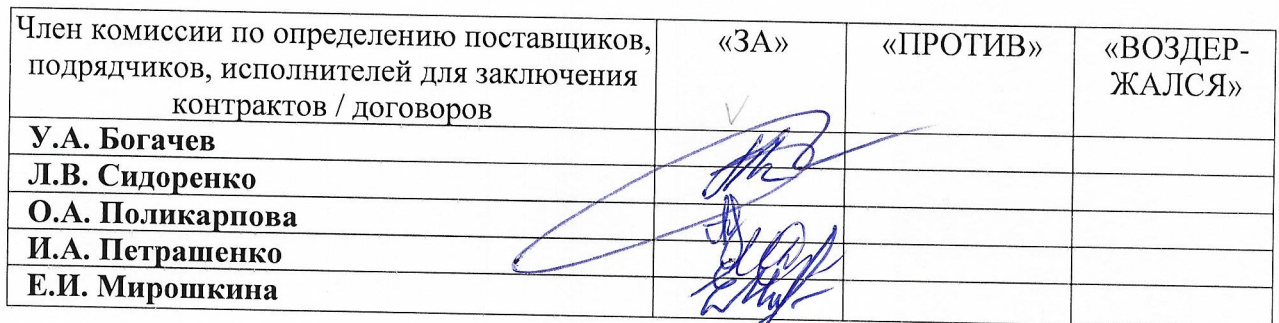 Член комиссии по определению поставщиков, подрядчиков, исполнителей для заключения контрактов / договоров «ЗА» «ПРОТИВ» «ВОЗДЕР-ЖАЛСЯ»
У.А. Богачев
Л.В. Сидоренко
О.А. Поликарпова
И.А. Петрашенко
Е.И. Мирошкина